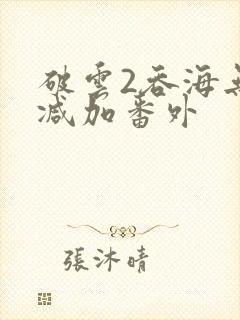 破雲2吞海無
减加番外
張沐晴